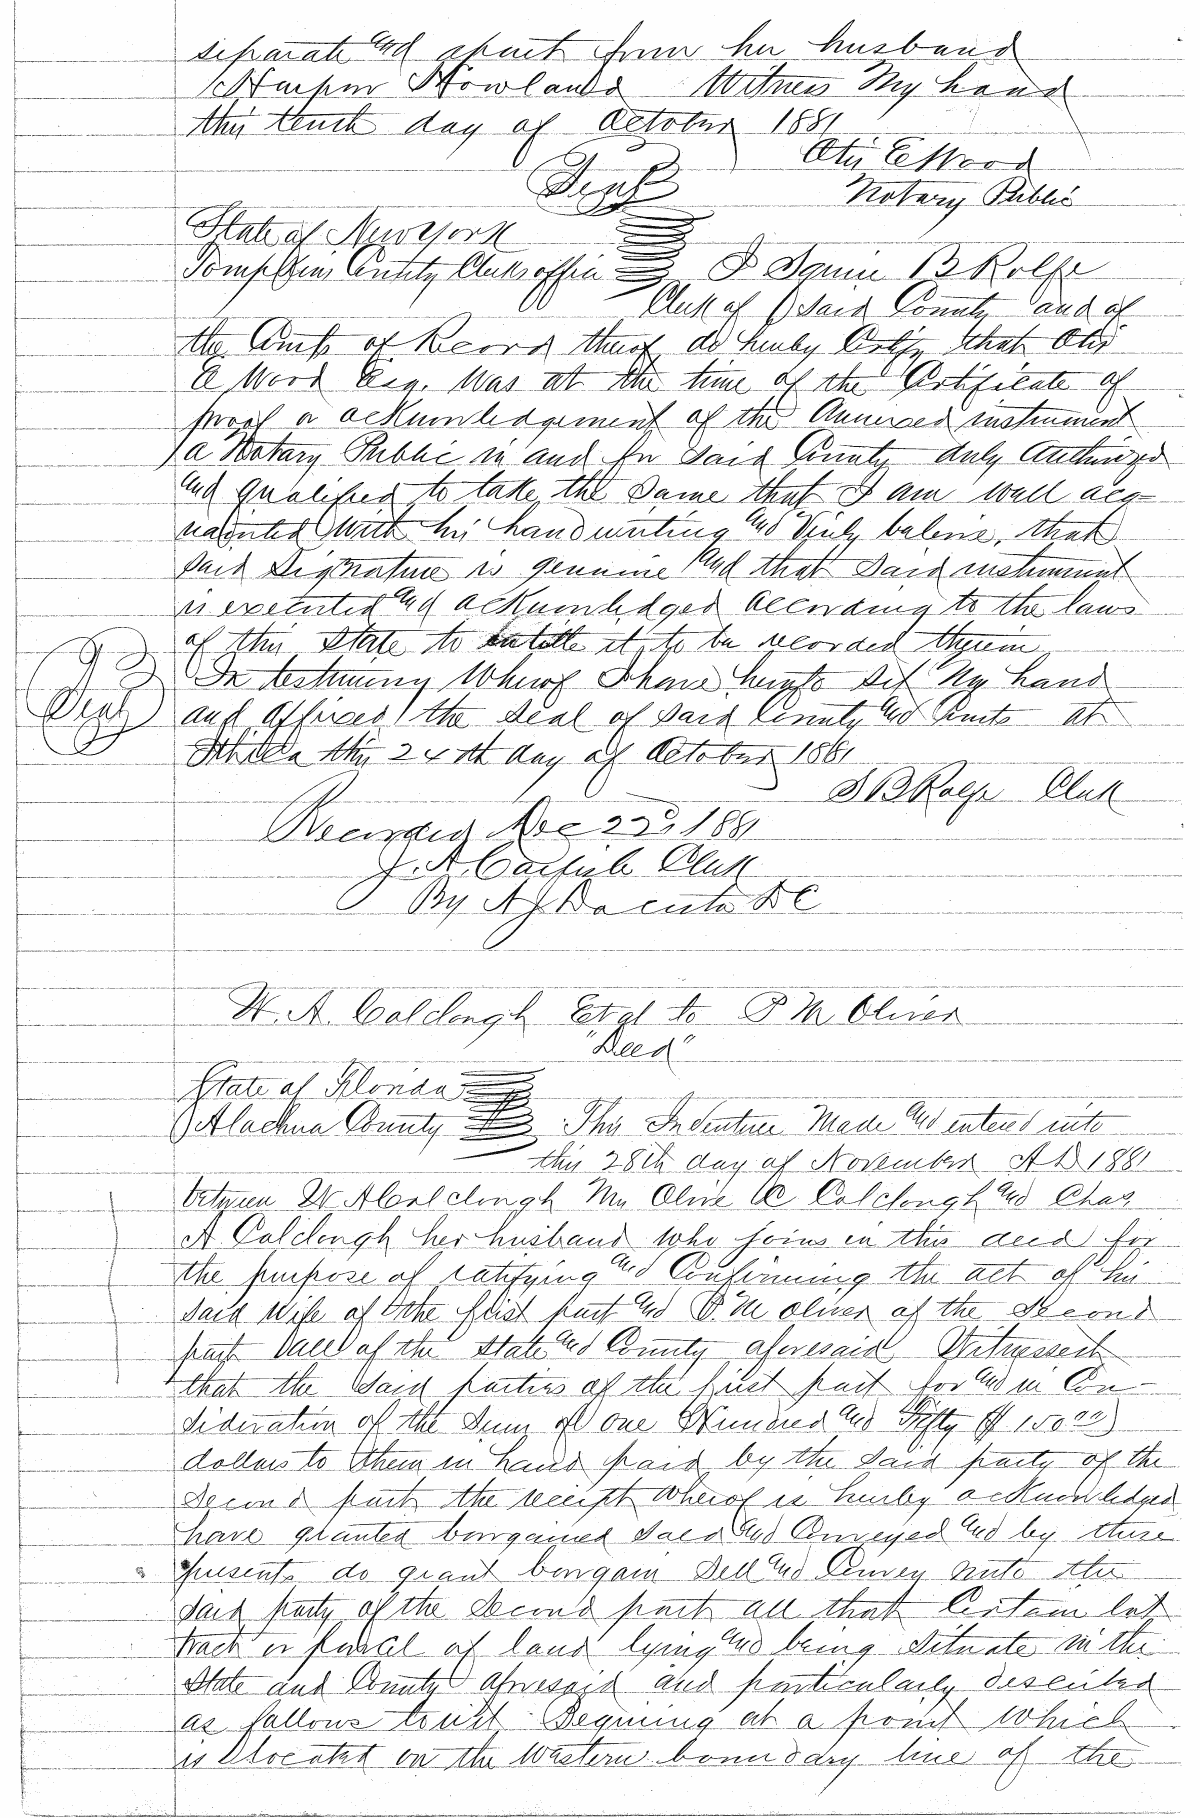 separate and apart from her husband
Harper Howland Witness My hand
this tenth day of October 1881
Otis E Wood
Seal
Notary Public
State of New York
Tompkins County Clerks office I Squire B Rolfe
Clerk of said County and of
the Courts of Record thereof do hereby Certify that Otis
E Wood Esq. was at the time of the Certificate of
proof or acknowledgement of the Annexed instrument
a Notary Public in and for said County duly Authorized
and qualified to take the same that I am well acq=
uainted with his handwriting and Verily beleive, that
said Signature is genuine and that said instrument
is executed and acknowledged according to the laws
of this State to entitle it to be recorded therein
In testimony Whereof I have hereunto set My hand
Seal
and affixed the seal of said County and Courts at
Ithica this 24th day of October 1881
S B Rolfe Clerk
Recorded Dec 22d, 1881
J. A. Carlisle Clerk
By A J Dacosta DC
W. A. Colclough Et al to P M Oliver
"Deed"
State of Florida
Alachua County This Indenture Made and entered into
this 28th day of November AD 1881
between W A Colclough Mrs Olive C Colclough and Chas
A Colclough her husband who joins in this deed for
the purpose of ratifying and Confirming the act of his
said wife of the first part and P. M Oliver of the Second
part all of the State and County aforesaid Witnesseth
that the said parties of the first part for and in Con-
sideration of the Sum of One Hundred and Fifty ($ 150 00)
dollars to them in hand paid by the said party of the
second part the receipt whereof is hereby acknowledged
have granted bargained sold and Conveyed and by these
presents do grant bargain Sell and Convey unto the
said party of the second part all that Certain lot
tract or parcel of land lying and being situate in the
State and County aforesaid and particularly described
as follows towit Begining at a point which
is located on the Western boundary line of the